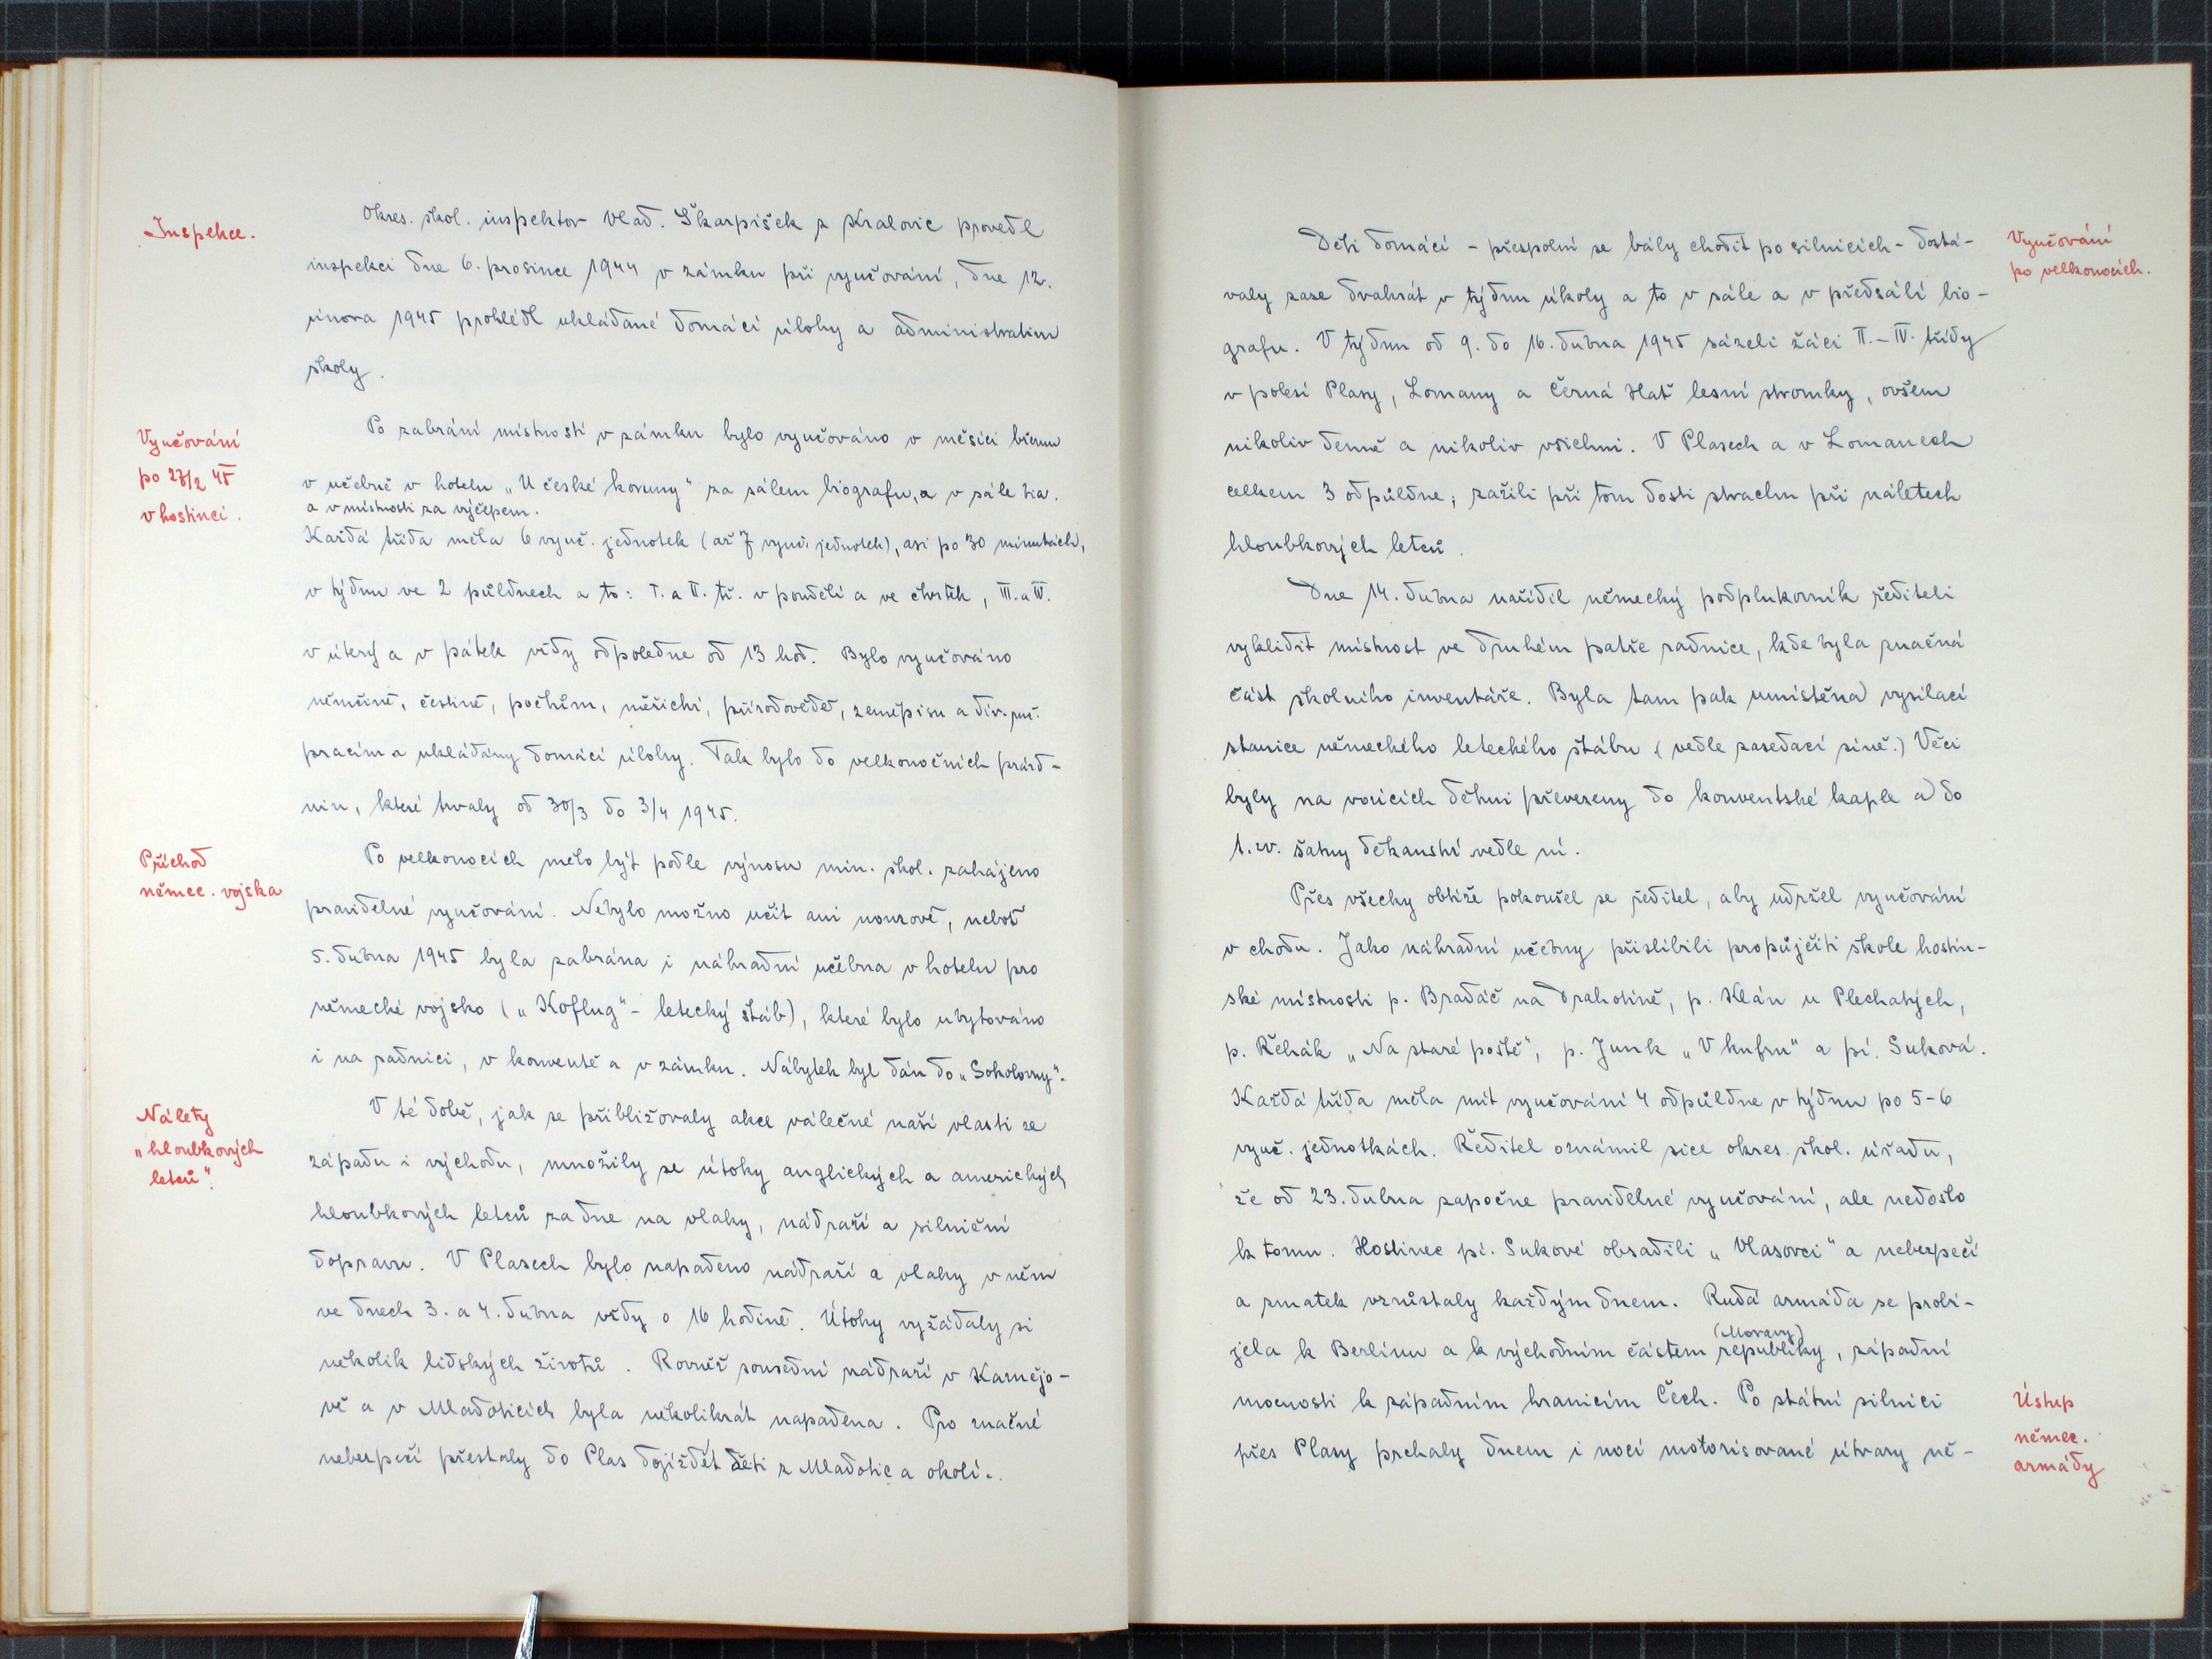 Inspekce.
Okres. škol. inspektor Vlad. Škarpíšek z Kralovic provedl
inspekci dne 6. prosince 1944 v zámku při vyučování, dne 12.
února 1945 prohlédl ukládané domácí úlohy a administrativu
školy.
Vyučování
po 27/2 45
v hostinci.
Po zabrání místností v zámku bylo vyučováno v měsíci březnu
v učebně v hotelu „U české koruny" za sálem biografu, a v sále bia.
a v místnosti za výčepem.
Každá třída měla 6 vyuč. jednotek (až 7 vyuč. jednotek), asi po 30 minutách,
v týdnu ve 2 půldnech a to: I. a II. tř. v pondělí a ve čtvrtek, III. a IV.
v úterý a v pátek vždy odpoledne od 13 hod. Bylo vyučováno
němčině, češtině, počtům, měřictví, přírodovědě, zeměpisu a dív. ruč.
pracím a ukládány domácí úlohy. Tak bylo do velkonočních prázd-
nin, které trvaly od 30/3 do 3/4 1945.
Příchod
němec. vojska
Po velkonocích mělo být podle výnosu min. škol. zahájeno
pravidelné vyučování. Nebylo možno učit ani nouzově, neboť
5. dubna 1945 byla zabrána i náhradní učebna v hotelu pro
německé vojsko („Koflug" - letecký štáb), které bylo ubytováno
i na radnici, v konventě a v zámku. Nábytek byl dán do „Sokolovny".
Nálety
„hloubkových
letců".
V té době, jak se přibližovaly akce válečné naší vlasti ze
západu i východu, množily se útoky anglických a amerických
hloubkových letců za dne na vlaky, nádraží a silniční
dopravu. V Plasech bylo napadeno nádraží a vlaky v něm
ve dnech 3. a 4. dubna vždy o 16 hodině. Útoky vyžádaly si
několik lidských životů. Rovněž sousední nádraží v Kaznějo-
vě a v Mladoticích byla několikrát napadena. Pro značné
nebezpečí přestaly do Plas dojíždět děti z Mladotic a okolí.
Vyučování
po velkonocích.
Děti domácí - přespolní se bály chodit po silnicích - dostá-
valy zase dvakrát v týdnu úkoly a to v sále a v předsálí bio-
grafu. V týdnu od 9. do 16. dubna 1945 sázeli žáci II. - IV. třídy
v polesí Plasy, Lomany a Černá Hať lesní stromky, ovšem
nikoliv denně a nikoliv všichni. V Plasech a v Lomanech
celkem 3 odpůldne; zažili při tom dosti strachu při náletech
hloubkových letců.
Dne 14. dubna nařídil německý podplukovník řediteli
vyklidit místnost ve druhém patře radnice, kde byla značná
část školního inventáře. Byla tam pak umístěna vysílací
stanice německého leteckého štábu (vedle zasedací síně.) Věci
byly na vozících dětmi převezeny do konventské kaple a do
t. zv. šatny děkanství vedle ní.
Přes všechy obtíže pokoušel se ředitel, aby udržel vyučování
v chodu. Jako náhradní učebny přislíbili propůjčiti škole hostin-
ské místnosti p. Bradáč na Drahotíně, p. Klán u Plechatých,
p. Řehák „Na staré poště", p. Junk „V kufru" a pí. Suková.
Každá třída měla mít vyučování 4 odpůldne v týdnu po 5-6
vyuč. jednotkách. Ředitel oznámil sice okres. škol. úřadu,
že od 23. dubna započne pravidelné vyučování, ale nedošlo
k tomu. Hostinec pí. Sukové obsadili „Vlasovci" a nebezpečí
a zmatek vzrůstaly každým dnem. Rudá armáda se probí-
(Moravy)
jela k Berlínu a k východním částem republiky, západní
mocnosti k západním hranicím Čech. Po státní silnici
přes Plasy prchaly dnem i nocí motorisované útvary ně-
Ústup
němec.
armády